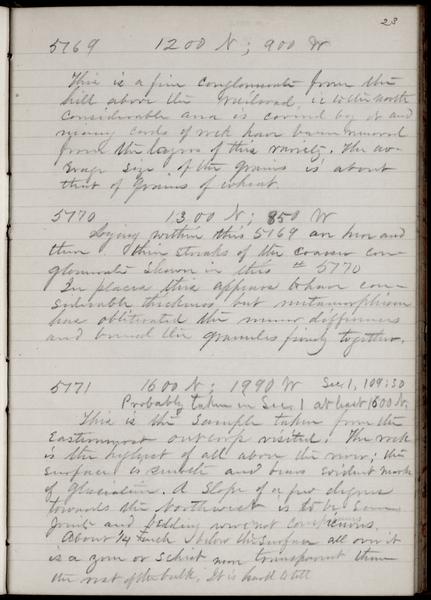 23
5169 1200 N; 900 W
This is a fine conglomerate from the
hill above the Railroad, is to the north
considerable area is covered by it and
many cords of rock have been removed
from the layers of this variety. The av-
erage size of the grains is about
that of grains of wheat.
5170 1300 N; 850 W
Lying within this 5169 are here and
there thin streaks of the coarser con-
glomerate shown in this # 5170
In places this appears to have con-
siderable thickness but metamorphism
has obliterated the minor differences
and bound the granules firmly together.
5171 1600 N; 1990 W Sec. 1, 109:30
Probably taken in Sec. 1 at least 1600 N.
This is the sample taken from the
Easternmost outcrop visited. The rock
is the highest of all above the river; the
surface is smooth and bears evident marks
of glaciation. A slope of a few degrees
towards the Northwest is to be seen
Joints and bedding were not conspicuous.
About 1/4 inch below the surface all over it
is a zone of schist more transparent than
the rest of the bulk. It is hard to tell